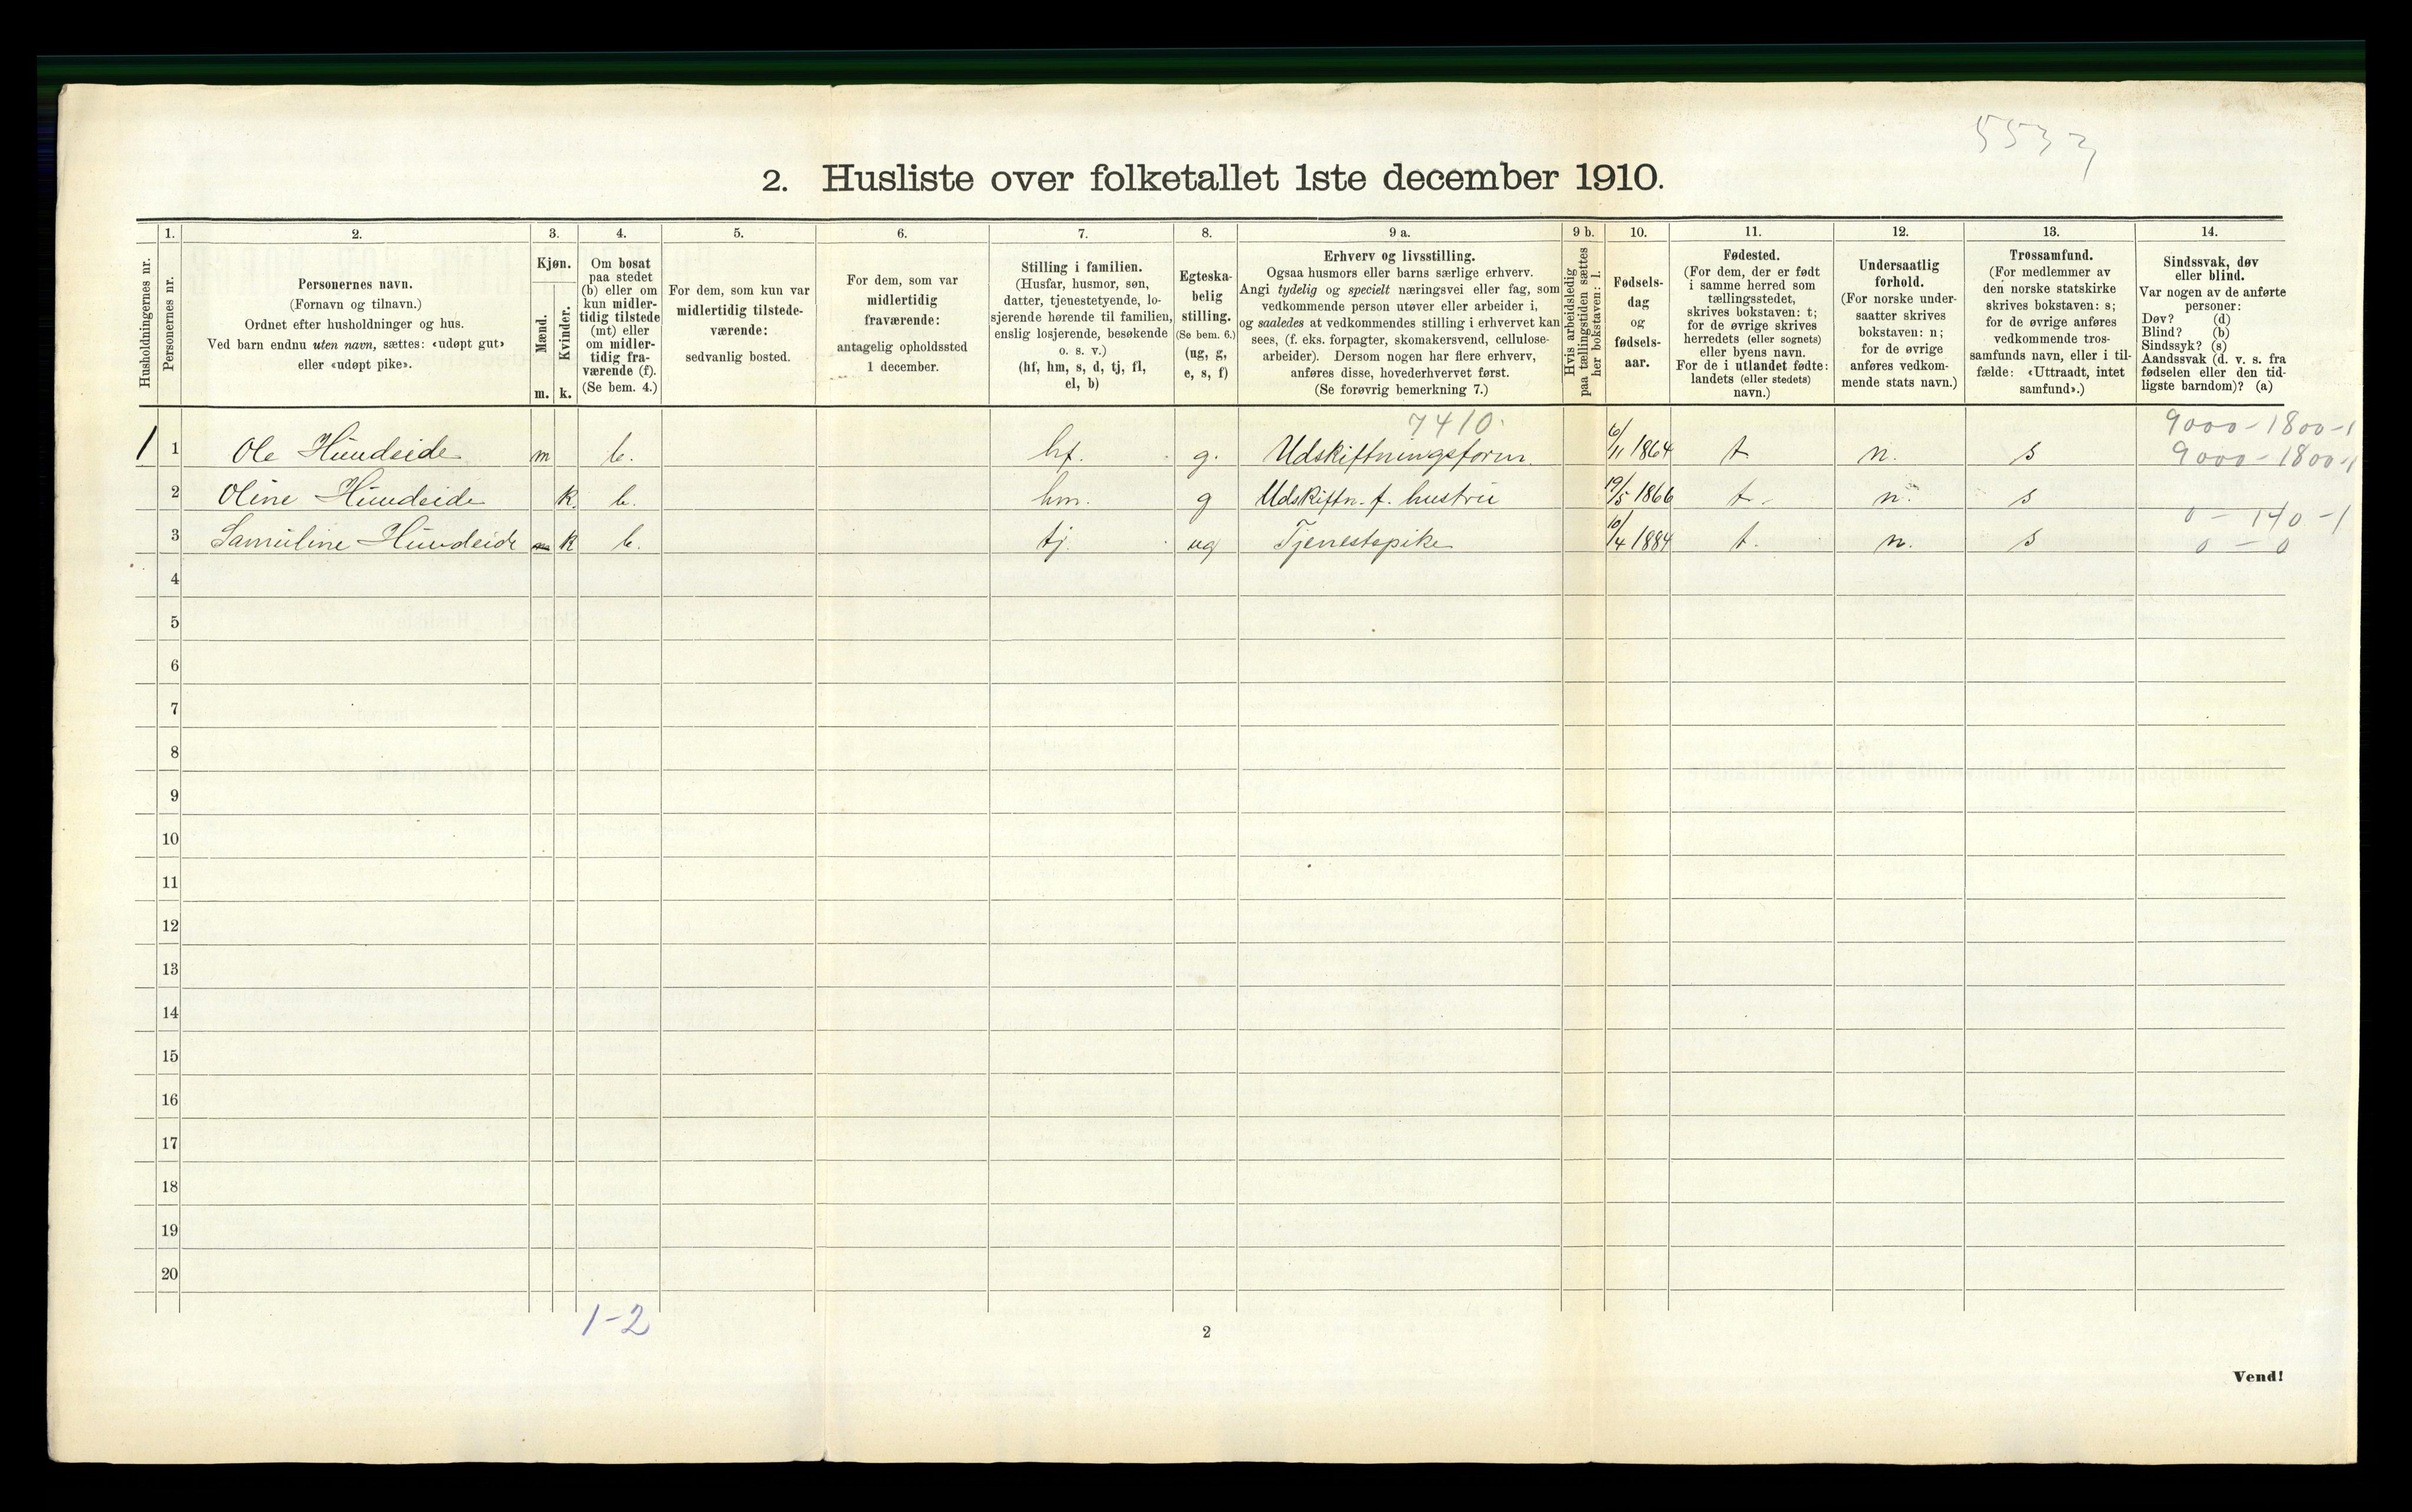 5532
2. Husliste over folketallet 1ste december 1910.
1. 2. 3. 4. 5. 6. 7. 8. 9 a. 9 b. 10. 11. 12. 13. 14.
Husholdningernes nr.
Personernes nr.
Personernes navn.
(Fornavn og tilnavn.)
Ordnet efter husholdninger og hus.
Ved barn endnu uten navn, sættes: «udøpt gut»
eller «udøpt pike».
Kjøn.
Mænd.
Kvinder.
m. k.
Om bosat
paa stedet
(b) eller om
kun midler-
tidig tilstede
(mt) eller
om midler-
tidig fra-
værende (f).
(Se bem. 4.)
For dem, som kun var
midlertidig tilstede-
værende:
sedvanlig bosted.
For dem, som var
midlertidig
fraværende:
antagelig opholdssted
1 december.
Stilling i familien.
(Husfar, husmor, søn,
datter, tjenestetyende, lo-
sjerende hørende til familien,
enslig losjerende, besøkende
o. s. v.)
(hf, hm, s, d, tj, fl,
el, b)
Egteska-
belig
stilling.
(Se bem. 6.)
(ug, g,
e, s, f)
Erhverv og livsstilling.
Ogsaa husmors eller barns særlige erhverv.
Angi tydelig og specielt næringsvei eller fag, som
vedkommende person utøver eller arbeider i,
og saaledes at vedkommendes stilling i erhvervet kan
sees, (f. eks. forpagter, skomakersvend, cellulose-
arbeider). Dersom nogen har flere erhverv,
anføres disse, hovederhvervet først.
(Se forøvrig bemerkning 7.)
Hvis arbeidsledig
paa tællingstiden sættes
her bokstaven: l.
Fødsels-
dag
og
fødsels-
aar.
Fødested.
(For dem, der er født
i samme herred som
tællingsstedet,
skrives bokstaven: t;
for de øvrige skrives
herredets (eller sognets)
eller byens navn.
For de i utlandet fødte:
landets (eller stedets)
navn.)
Undersaatlig
forhold.
(For norske under-
saatter skrives
bokstaven: n;
for de øvrige
anføres vedkom-
mende stats navn.)
Trossamfund.
(For medlemmer av
den norske statskirke
skrives bokstaven: s;
for de øvrige anføres
vedkommende tros-
samfunds navn, eller i til-
fælde: «Uttraadt, intet
samfund».)
Sindssvak, døv
eller blind.
Var nogen av de anførte
personer:
Døv? (d)
Blind? (b)
Sindssyk? (s)
Aandssvak (d. v. s. fra
fødselen eller den tid-
ligste barndom)? (a)
7410. 9000-1800-1
1 1 Ole Hundeide m b. hf. g. Udskiftningsform. 6/11 1864 t n. s 9000-1800-1
2 Oline Hundeide k. b. hm. g Udskiftn. f. hustru 19/5 1866 t. n. s
0 - 140 - 1
3 Samuline Hundeide m k b. tj. ug Tjenestepike 10/4 1884 t. n. s 0 - 0
4
5
6
7
8
9
10
11
12
13
14
15
16
17
18
19
20
1-2
2
Vend!